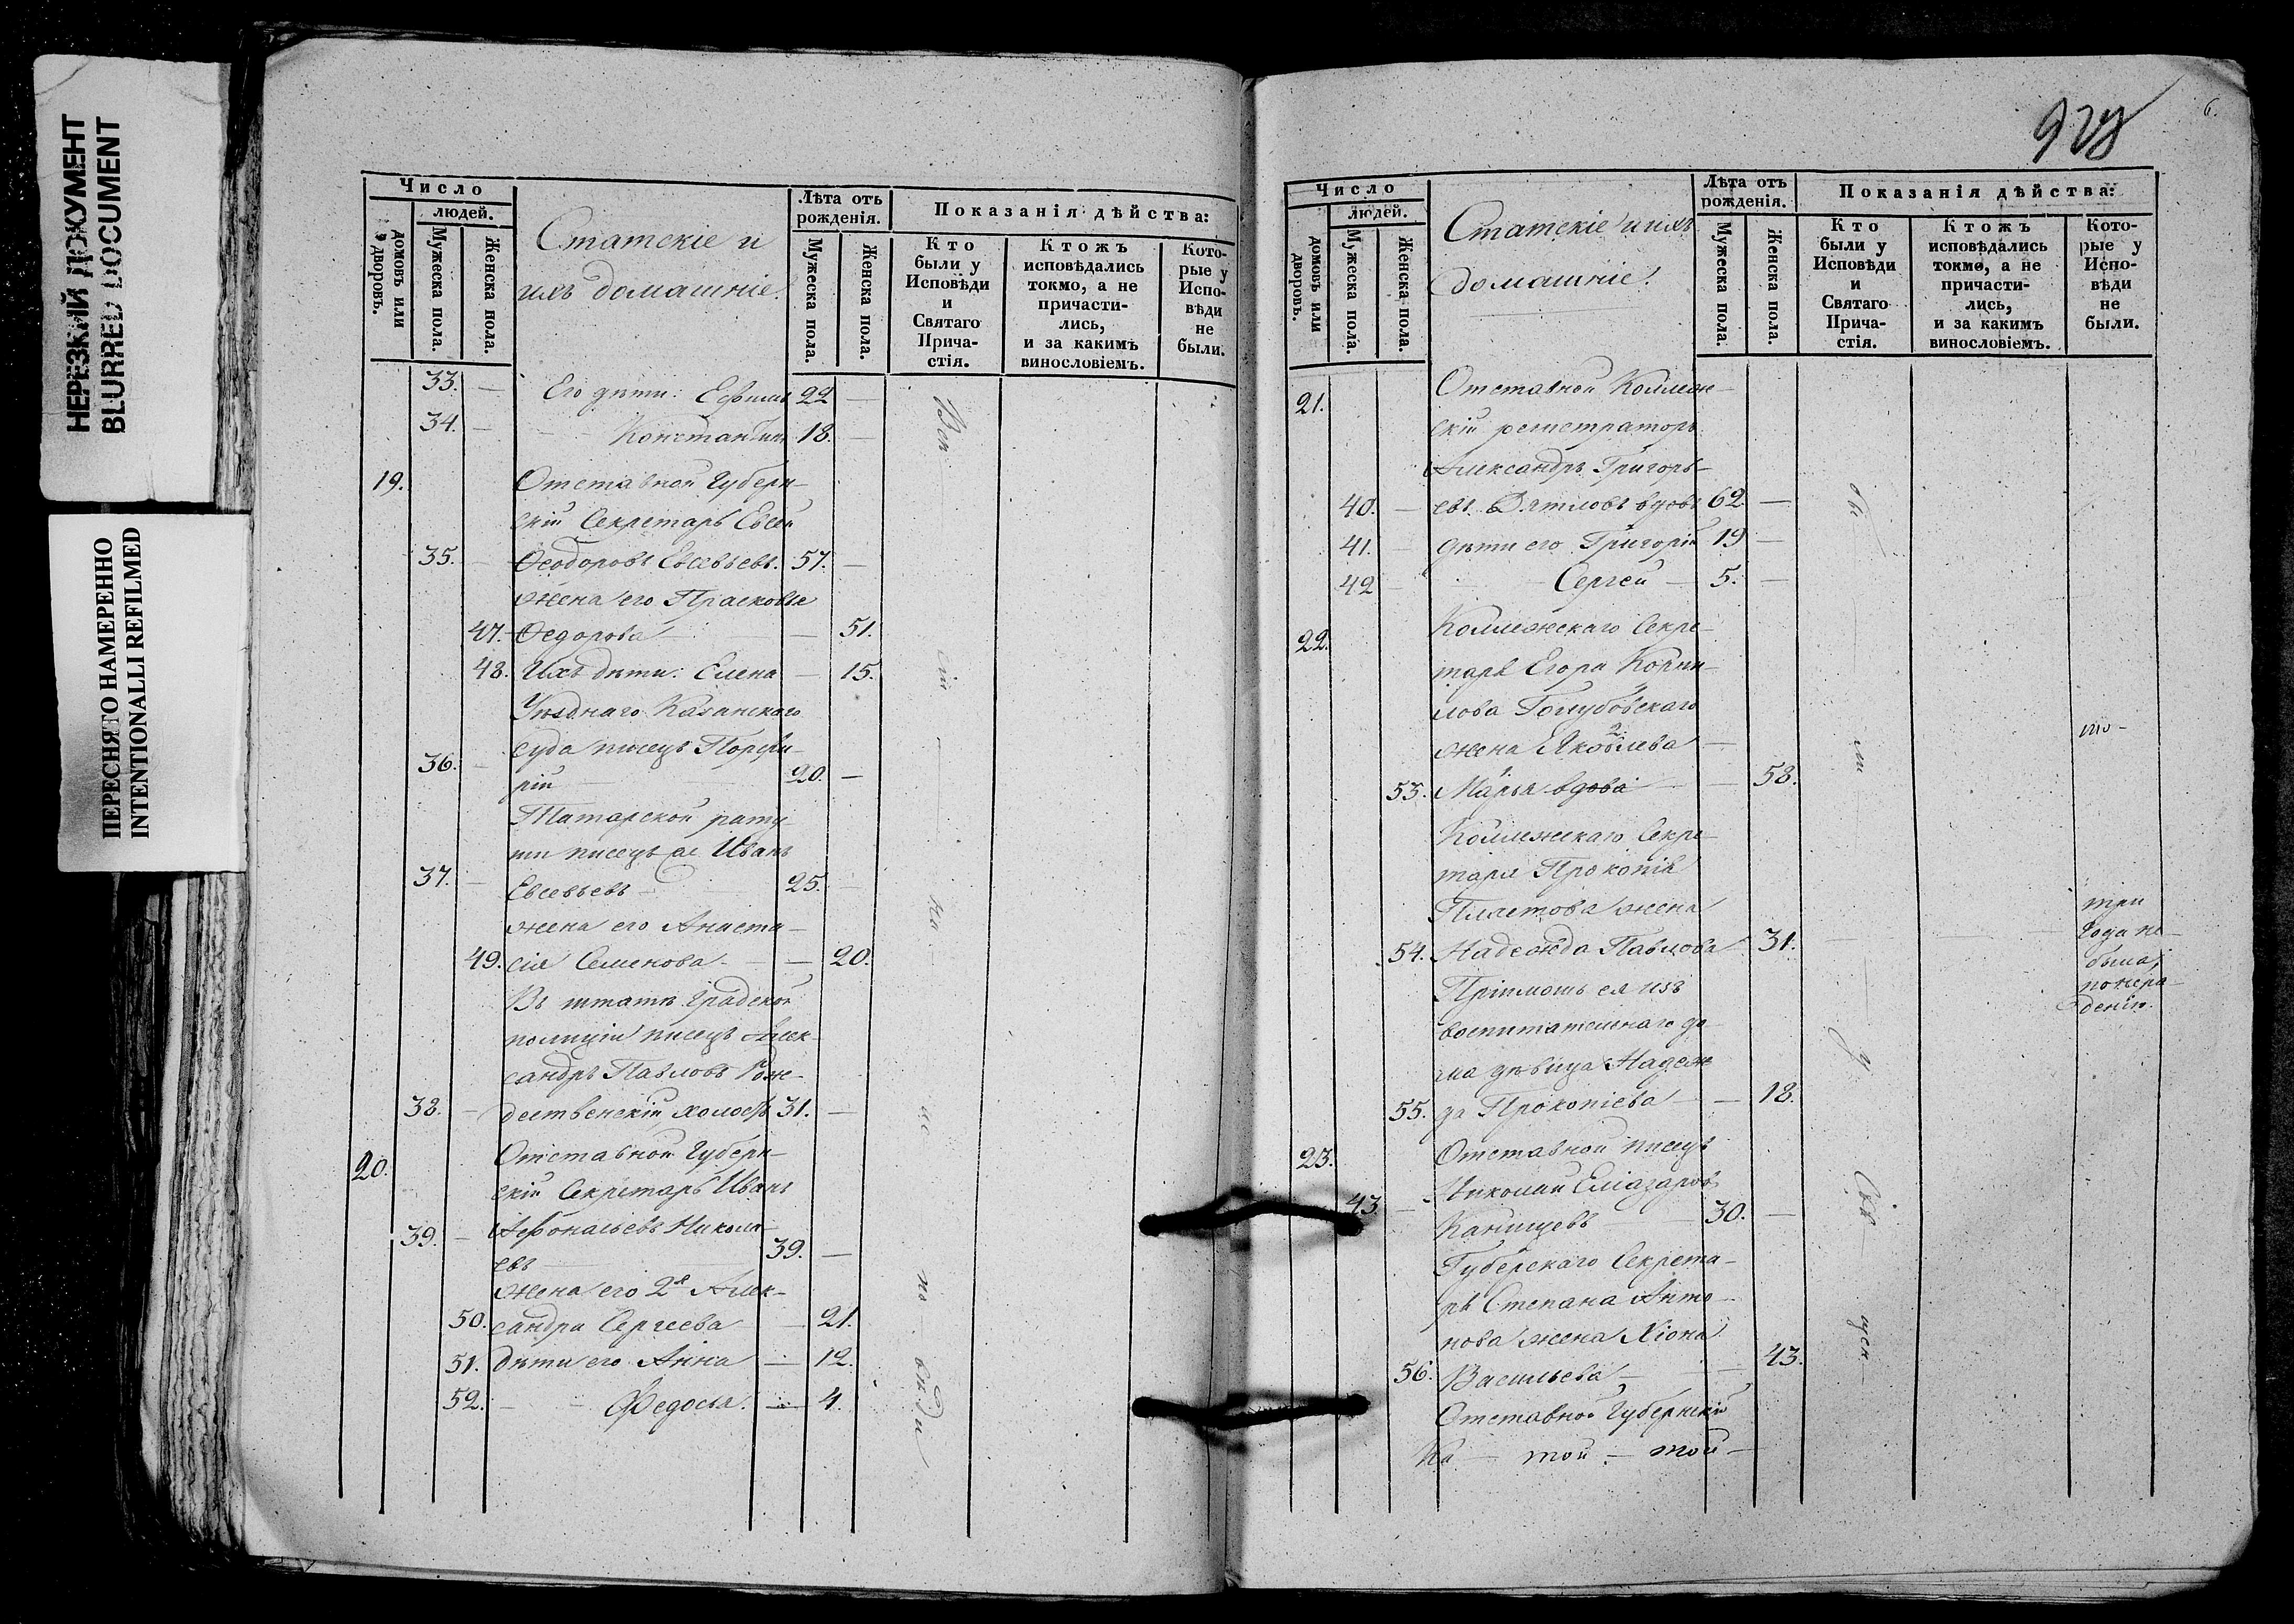 НЕРЕЗКИЙ ДОКУМЕНТ
BLURRED DOCUMENT
ПЕРЕСНЯТО НАМЕРЕННО
INTENTIONALLI REFILMED
Число
людей.
домовъ или дворовъ.
Мужеска пола.
Женска пола.
Статскіе и
ихъ домашніе.
Лѣта отъ
рожденія.
Мужеска пола.
Женска пола.
Показанія дѣйства:
Кто
были у
Исповѣди
и
Святаго
Прича-
стія.
Ктожъ
исповѣдались
токмо, а не
причасти-
лись,
и за какимъ
винословіемъ.
Кото-
рые у
Испо-
вѣди
не
были.
33. — Его дѣти: Ефимъ 22 —
34. — Константинъ 18. —
19. Отставной Губерн-
скій Секретарь Евсей
35. — Ѳеодоровъ Евсевьевъ. 57. —
жена его Прасковья
47. Ѳедорова — 51.
48. Ихъ дѣти: Елена — 15.
Уѣзднаго Казанскаго
суда писецъ Порфи-
36. — рій 20. —
Татарской рату-
ши писецъ Иванъ
37. — Евсевьевъ — 25. —
жена его Анаста-
49. сія Семенова — — 20.
Въ штатѣ Градской
полиціи писецъ Алек-
сандръ Павловъ Рож-
38. — дественскій, холостъ 31. —
20. Отставной Губерн-
скій Секретарь Иванъ
39. — Афонасьевъ Никола-
евъ — 39. —
жена его 2я Алек-
50. сандра Сергеева — 21.
51. дѣти его Анна — 12.
52. — Федосья. — 4.
6.
Число
людей.
домовъ или дворовъ.
Мужеска пола.
Женска пола.
Статскіе и ихъ
домашніе.
Лѣта отъ
рожденія.
Мужеска пола.
Женска пола.
Показанія дѣйства:
Кто
были у
Исповѣди
и
Святаго
Прича-
стія.
Ктожъ
исповѣдались
токмо, а не
причасти-
лись,
и за какимъ
винословіемъ.
Кото-
рые у
Испо-
вѣди
не
были.
21. Отставной Коллеж-
скій регистраторъ
Александръ Григорь-
40. — евъ Дятловъ вдовъ 62. —
41. — дѣти его Григорій 19 —
42 — Сергей — 5. —
22. Коллежскаго Секре-
таря Егора Корни-
лова Голубовскаго
жена Яковлева —
53. Марья вдова — 58.
Коллежскаго Секре-
таря Прокопія
Плаетова жена
54. Надежда Павлова 31. —
три
года не
была,
понера-
денію.
Пріімошъ ея изъ
воспитательнаго до-
ма дѣвица Надеж-
55. да Прокопіева — — 18.
23. Отставной писецъ
Николай Елiазаровъ
43 — Канищевъ 30. —
Губерскаго Секрета-
ря Степана Анто-
нова жена Хіона
56. Васильева — — 43.
Отставной Губернскій